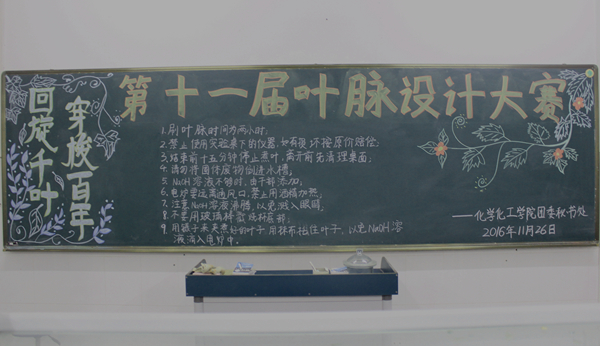 第十一届叶脉设计大赛
穿梭百年
回旋千叶
1.刷叶脉时间为两小时。
2.禁止使用实验桌下的仪器,如有损坏按原价赔偿。
3.结束前十五分钟停止煮叶,离开前先清理桌面。
4.请勿将固体废物倒进水槽。
5.NaOH溶液不够时,由干部添加。
6.电炉要远离通风口,禁止用酒精加热。
7.注意NaOH溶液沸腾,以免溅入眼睛。
8.不要用玻璃棒
9.用镊子来夹煮好的叶子,用抹布包住叶子,以免NaOH溶
液滴入电炉中。
——化学化工学院团委秘书处
2016年11月26日